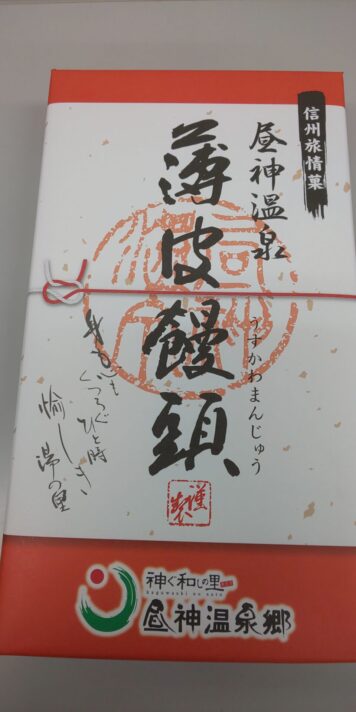 信州旅情菓
昼神温泉
薄皮饅頭
うすかわまんじゅう
身も心も
くつろぐひと時
愉しき
湯の里
謹製
神ぐ和しの里
kagawashi no sato
昼神温泉郷